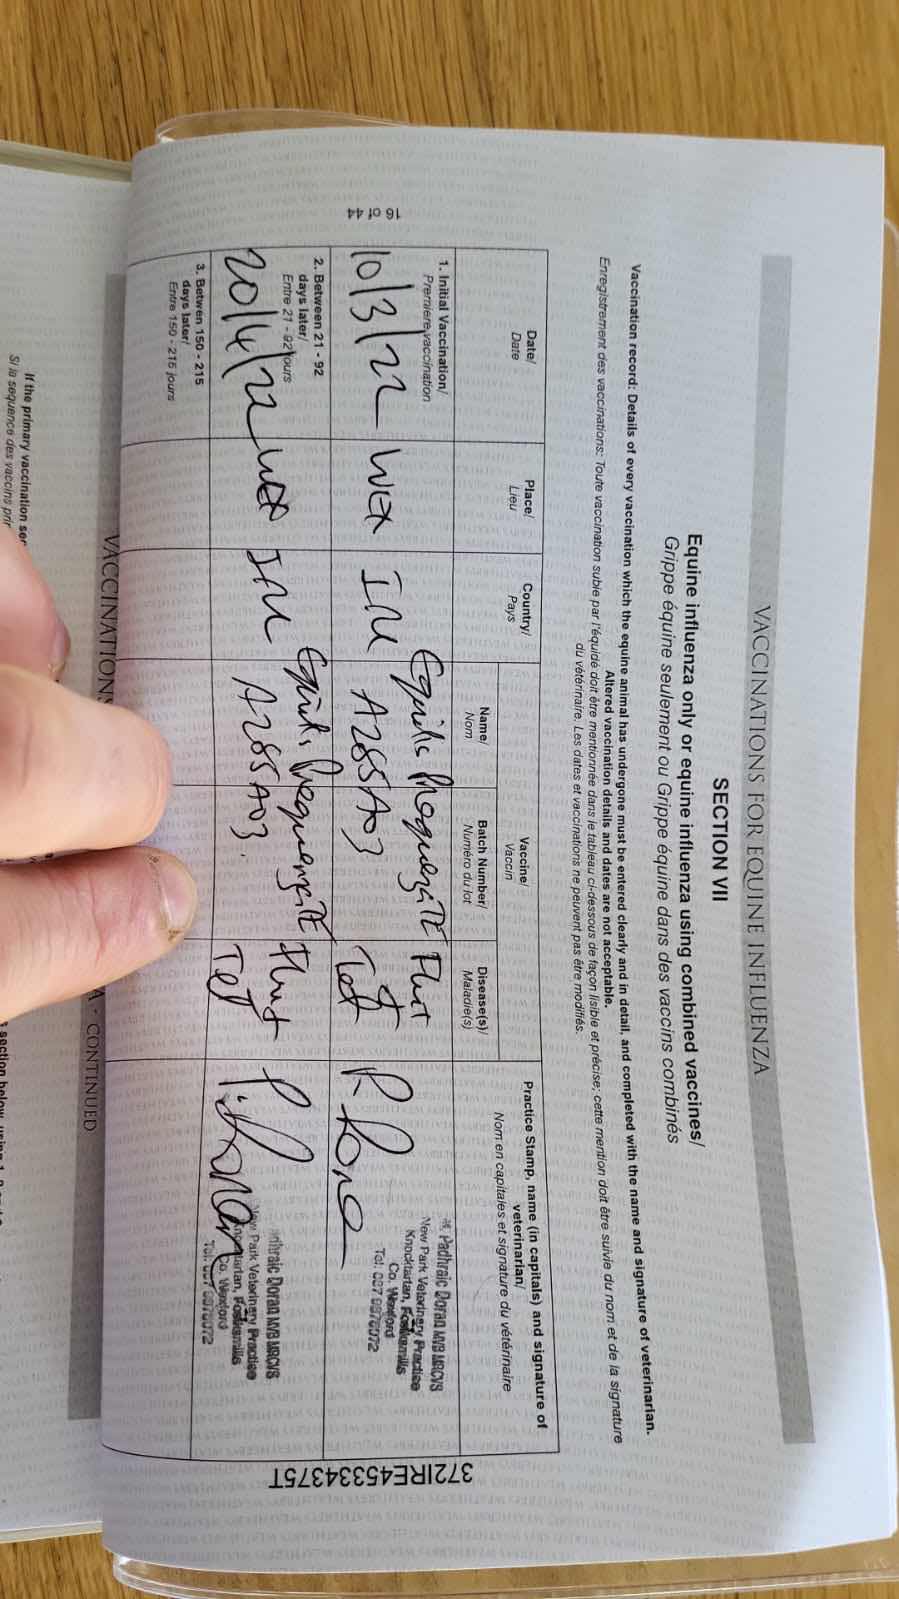 VACCINATIONS FOR EQUINE INFLUENZA
SECTION VII
Equine influenza only or equine influenza using combined vaccines/
Grippe équine seulement ou Grippe équine dans des vaccins combinés
Vaccination record: Details of every vaccination which the equine animal has undergone must be entered clearly and in detail, and completed with the name and signature of veterinarian.
Altered vaccination details and dates are not acceptable.
Enregistrement des vaccinations: Toute vaccination subie par l'équidé doit être mentionnée dans le tableau ci-dessous de façon lisible et précise; cette mention doit être suivie du nom et de la signature
du vétérinaire. Les dates et vaccinations ne peuvent pas être modifiés.
Date/
Date
Place/
Lieu
Country/
Pays
Vaccine/
Vaccin
Name/
Nom
Batch Number/
Numéro du lot
Disease(s)/
Maladie(s)
Practice Stamp, name (in capitals) and signature of
veterinarian/
Nom en capitales et signature du vétérinaire
1. Initial Vaccination/
Premiere vaccination
10/3/22
WEX
IRL
Equilis Prequenza TE
A285A03
Flu +
Tet
Padhraic Doran MVB MRCVS
New Park Veterinary Practice
Knocktartan, Foulksmills
Co. Wexford
Tel: 087 9876072
2. Between 21 - 92
days later/
Entre 21 - 92 jours
20/4/22
WEX
IRL
Equilis Prequenza TE
A285A03.
Flu +
Tet
Doran MVB MRCVS
New Park Veterinary Practice
Foulksmills
Co. Wexford
Tel: 087 9876072
3. Betwen 150 - 215
days later/
Entre 150 - 215 jours
16 of 44
372IRE45334375T
VACCINATIONS
A - CONTINUED
If the primary vaccination
Si la sequence des vaccins
section below, using